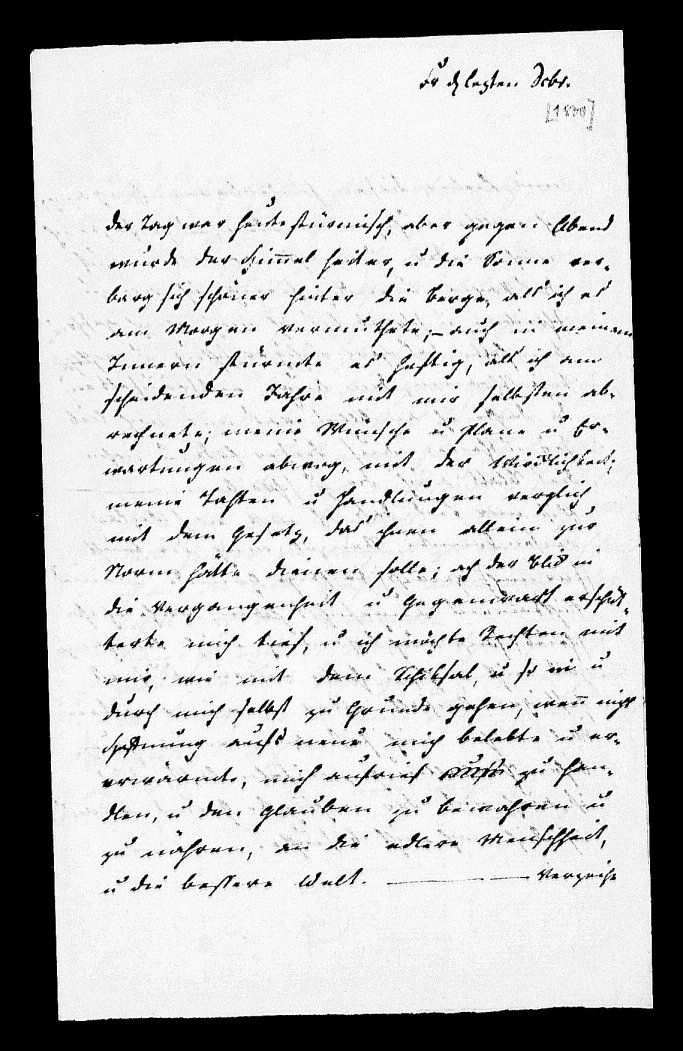 Fr d letzten Dcbr.
[1800]
der Tag war heute stürmisch, aber gegen Abend
wurde der Himmel heiter, u die Sonne ver-
barg sich schöner hinter die Berge, als ich es
am Morgen vermuthete; – auch in meinem
Innern stürmte es heftig, als ich am
scheidenden Jahre mit mir selbsten ab-
rechnete; meine Wünsche u Plane u Er-
wartungen abwog, mit der Wirklichkeit;
meine Thaten u Handlungen verglich
mit dem Gesetz, das ihnen allein zur
Norm hätte dienen solle; ach der Blik in
die Vergangenheit u Gegenwart erschüt-
terte mich tief, u ich möchte rechten mit
mir, wie mit dem Schiksal, u so in u
durch mich selbst zu Grunde gehen, wenn nicht
Hoffnung aufs neue mich belebte u er-
erwärmte, mich aufrief zu han-
dlen, u den Glauben zu bewahren u
zu nähren, an die edlere Menschheit,
u die bessere Welt. ———— Verzeihe